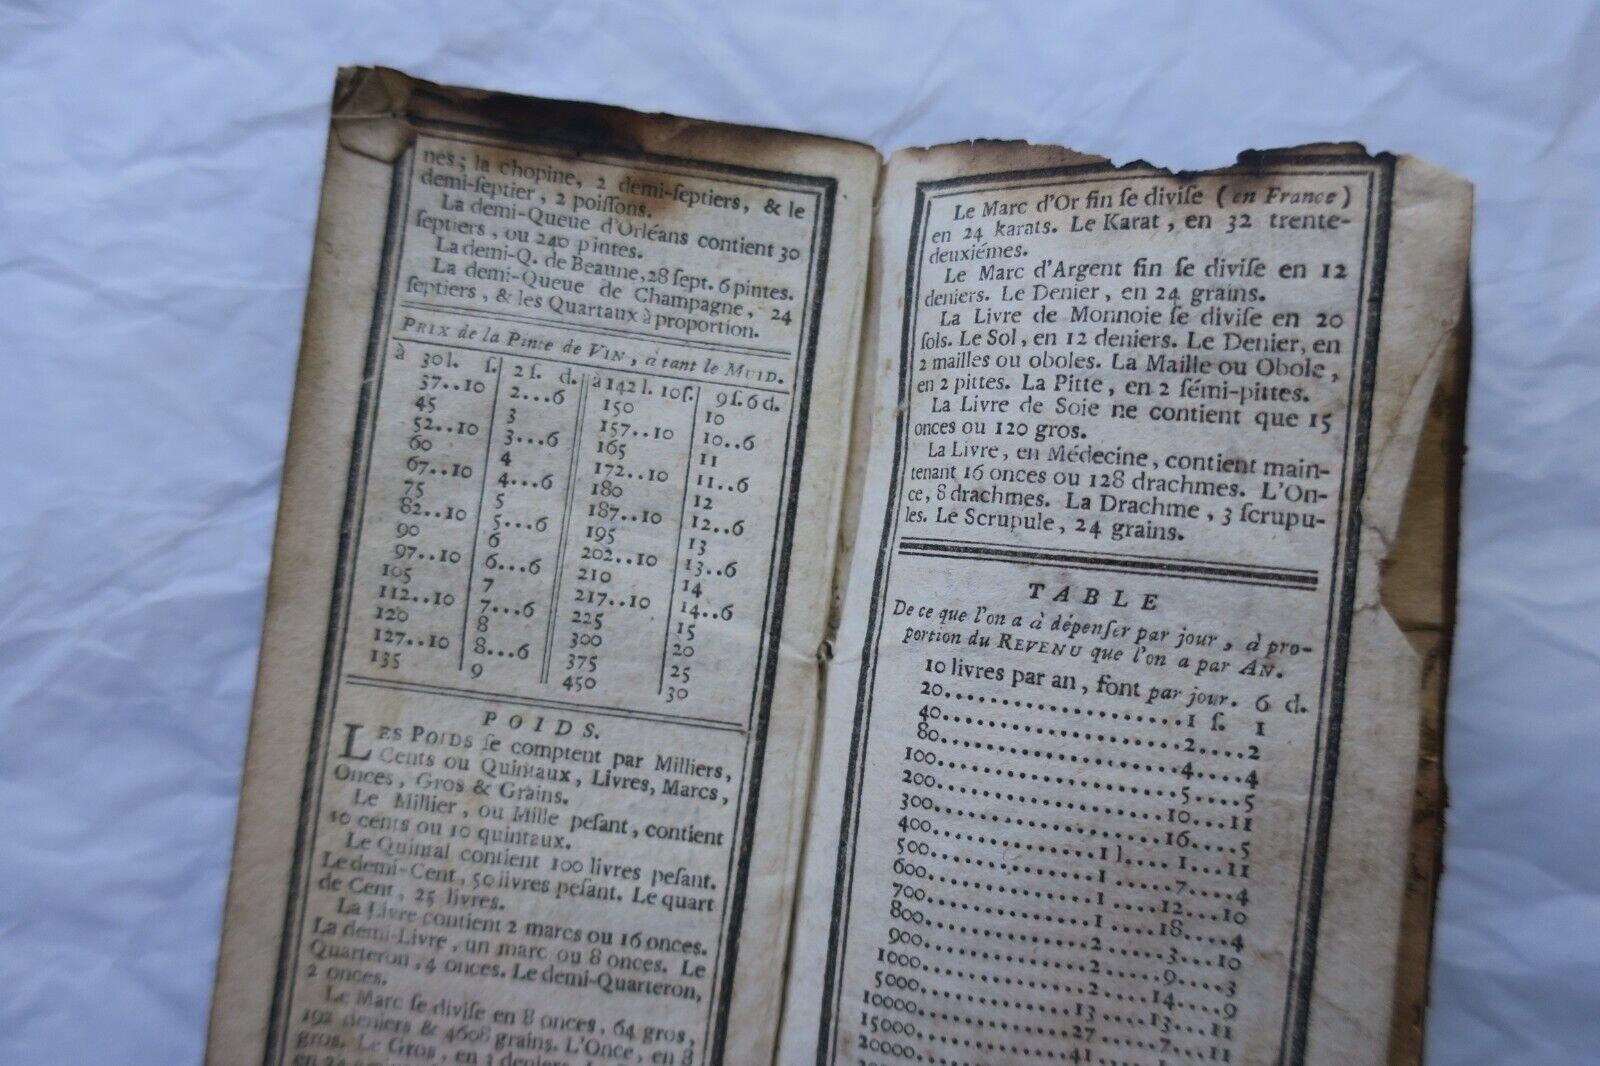 nes; la chopine, 2 demi-ſeptiers, & le
demi-ſeptier, 2 poiſſons.
La demi-Queue d'Orléans contient 30
ſeptiers, ou 240 pintes.
La demi-Q. de Beaune, 28 ſept. 6 pintes.
La demi-Queue de Champagne, 24
ſeptiers, & les Quartaux à proportion.
PRIX de la Pinte de VIN, à tant le MUID.
à 30 l. ſ. 2 ſ. d. à 142 l. 10ſ. 9 ſ. 6 d.
37..10 2...6 150 10
45 3 157..10 10..6
52..10 3...6 165 11
60 4 172..10 11..6
67..10 4...6 180 12
75 5 187..10 12..6
82..10 5...6 195 13
90 6 202..10 13..6
97..10 6...6 210 14
105 7 217..10 14..6
112..10 7...6 225 15
120 8 300 20
127..10 8...6 375 25
135 9 450 30
POIDS.
LES POIDS ſe comptent par Milliers,
Cents ou Quintaux, Livres, Marcs,
Onces, Gros & Grains.
Le Millier, ou Mille peſant, contient
10 cents ou 10 quintaux.
Le Quintal contient 100 livres peſant.
Le demi-Cent, 50 livres peſant. Le quart
de Cent, 25 livres.
La Livre contient 2 marcs ou 16 onces.
La demi-Livre, un marc ou 8 onces. Le
Quarteron, 4 onces. Le demi-Quarteron,
2 onces.
Le Marc ſe diviſe en 8 onces, 64 gros,
192 deniers & 4608 grains. L'Once, en 8
gros. Le Gros, en 3 deniers.
en 24
Le Marc d'Or fin ſe diviſe (en France)
en 24 karats. Le Karat, en 32 trente-
deuxiémes.
Le Marc d'Argent fin ſe diviſe en 12
deniers. Le Denier, en 24 grains.
La Livre de Monnoie ſe diviſe en 20
ſols. Le Sol, en 12 deniers. Le Denier, en
2 mailles ou oboles. La Maille ou Obole,
en 2 pittes. La Pitte, en 2 ſémi-pittes.
La Livre de Soie ne contient que 15
onces ou 120 gros.
La Livre, en Médecine, contient main-
tenant 16 onces ou 128 drachmes. L'On-
ce, 8 drachmes. La Drachme, 3 ſcrupu-
les. Le Scrupule, 24 grains.
TABLE
De ce que l'on a à dépenſer par jour, à pro-
portion du REVENU que l'on a par AN.
10 livres par an, font par jour. 6 d.
20..................1 ſ. 1
40..................2...2
80..................4....4
100.................5....5
200................10...11
300................16....5
400............1 l....1...11
500............1.....7....4
600............1....12...10
700............1....18....4
800............2.....3...10
900............2.....9....3
1000...........2....14....9
5000..........13....13...11
10000.........27.....7...11
15000.........41.....1
20000